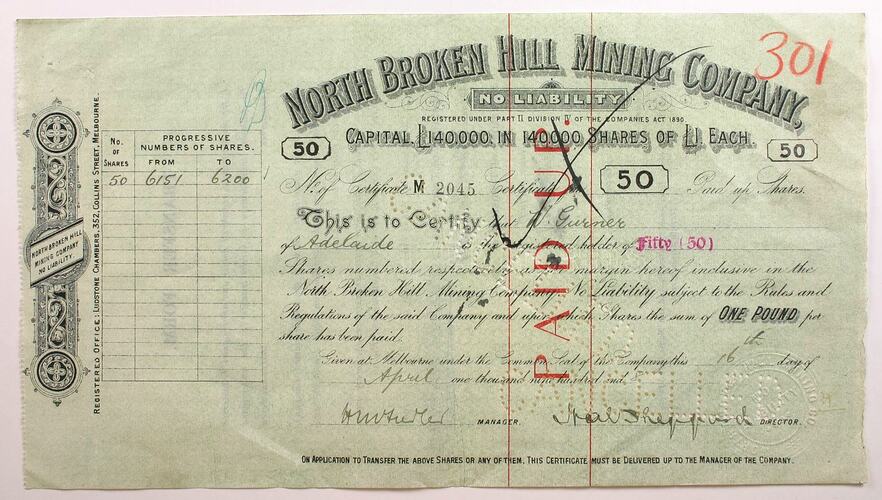 301
NORTH BROKEN HILL MINING COMPANY,
NO LIABILITY
REGISTERED UNDER PART II DIVISION IV OF THE COMPANIES ACT 1890.
CAPITAL £140,000, IN 140,000 SHARES OF £1 EACH.
50
50
No. of Certificate M 2045 Certificate for 50 Paid up Shares.
This is to Certify that W. Gurner
of Adelaide is the registered holder of Fifty (50)
Shares numbered respectively as in margin hereof inclusive in the
North Broken Hill Mining Company, No Liability subject to the Rules and
Regulations of the said Company and upon which Shares the sum of ONE POUND per
share has been paid.
Given at Melbourne under the Common Seal of the Company this 16th day of
April one thousand nine hundred and
MANAGER. Neal Sheppard DIRECTOR.
ON APPLICATION TO TRANSFER THE ABOVE SHARES OR ANY OF THEM, THIS CERTIFICATE MUST BE DELIVERED UP TO THE MANAGER OF THE COMPANY.
PAID UP.
CANCELLED
No. OF SHARES
PROGRESSIVE NUMBERS OF SHARES.
FROM TO
50 6151 6200
REGISTERED OFFICE: LUDSTONE CHAMBERS, 352, COLLINS STREET, MELBOURNE.
NORTH BROKEN HILL
MINING COMPANY
NO LIABILITY.